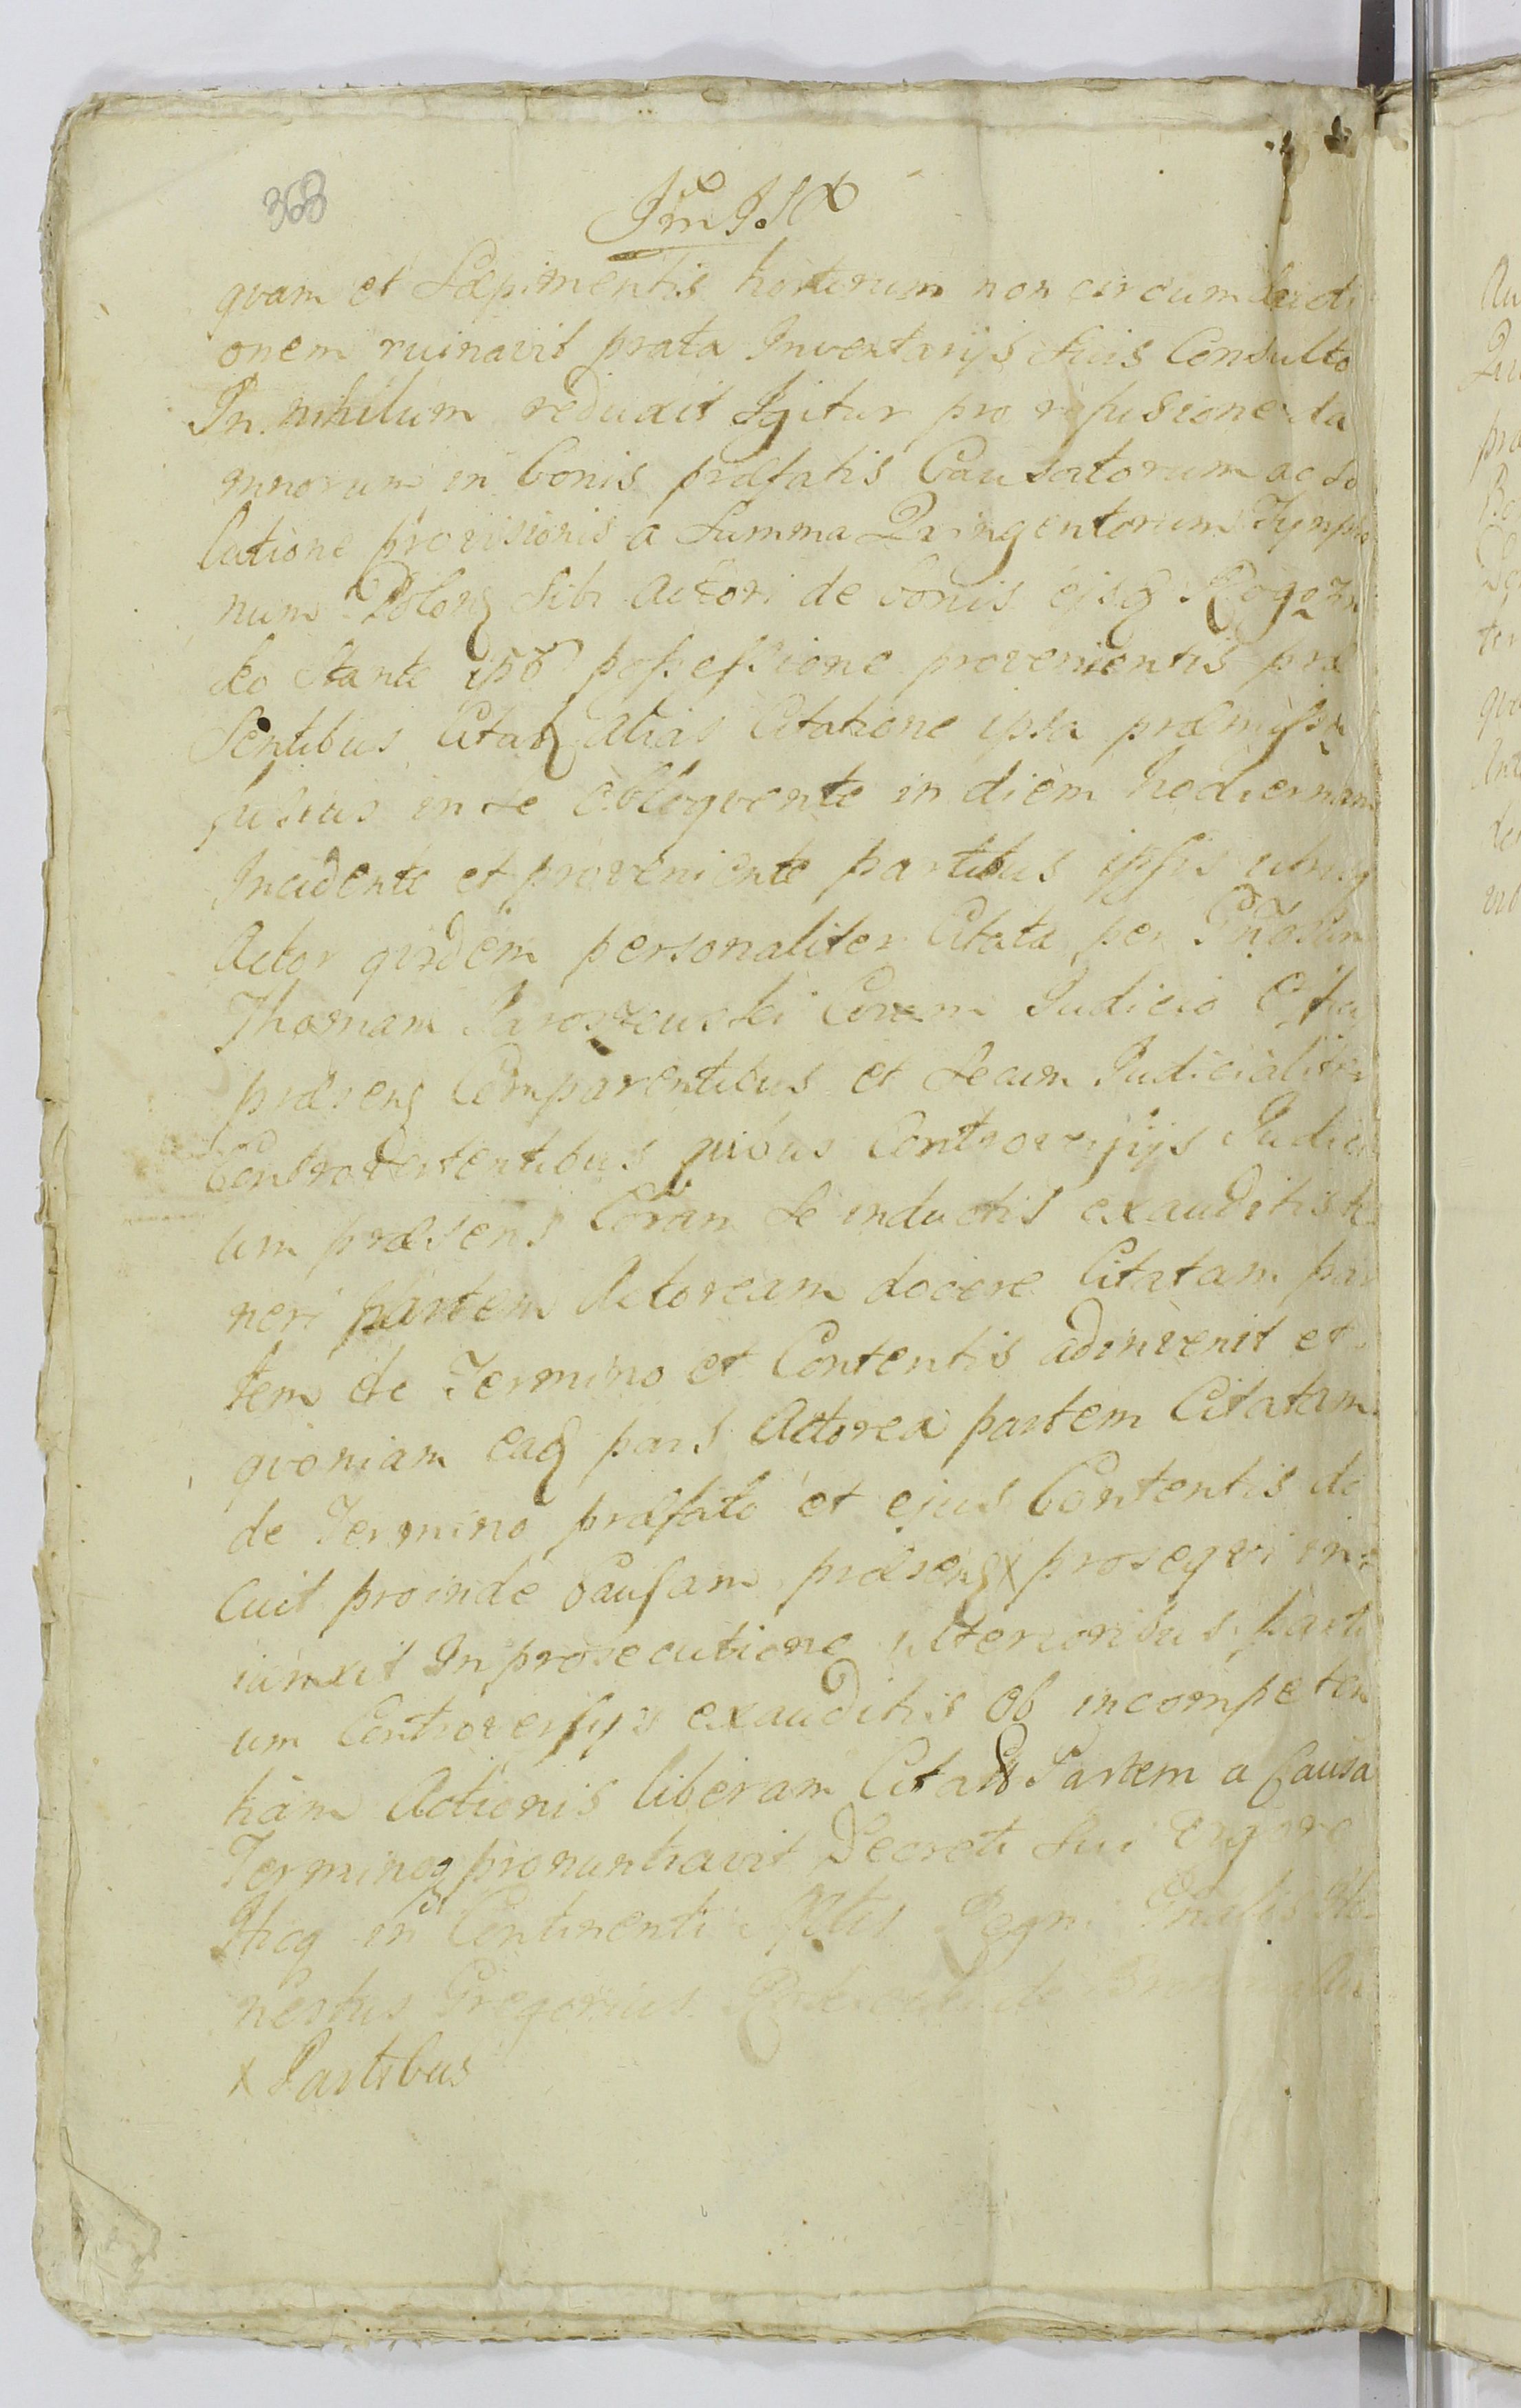 368
qvam et Sæpimentis hortorum non circumducti
onem ruinavit prata Inventarijs Suis Consulto
In nihilum reduxit Igitur pro refusione da
mnorum in bonis præfatis Causatorum ac So
lutione provisionis a Summa Qvingentorum Tympho
num Polon Sibi Actori de bonis ejsq Rogozin
sko Stante ipsr possessione provenientis præ
Sentibus Citat Alias Citatione ipsa præmissa
fusius in Se Obloqvente in diem hodiernam
Incidente et proveniente partibus ipsis utrisq
Actor qvidem personaliter Citata per Gnosum
Thomam Jaroszewski Coram Judicio Offij
præsens Comparentibus et Secum Judicialiter
Controvertentibus qvibus Controversijs Judici
um præsens Coram Se inductis exauditis te
neri partem Actoream docere Citatam par
tem de Termino et Contentis adinvenit et
qvoniam eaq pars Actorea partem Citatam
de Termino præfato et ejus Contentis do
cuit proinde Causam præsens x proseqvi in
iunxit In prosecutione ulterioribus parti
um Controversijs exauditis Ob incompeten
tiam Actionis liberam Citat Partem a Causa
Terminoq pronuntiavit Decreti Sui vigore
Hicq in Continenti Mtis Regni Gnalis Ho
nestus Gregorius de
x Partibus